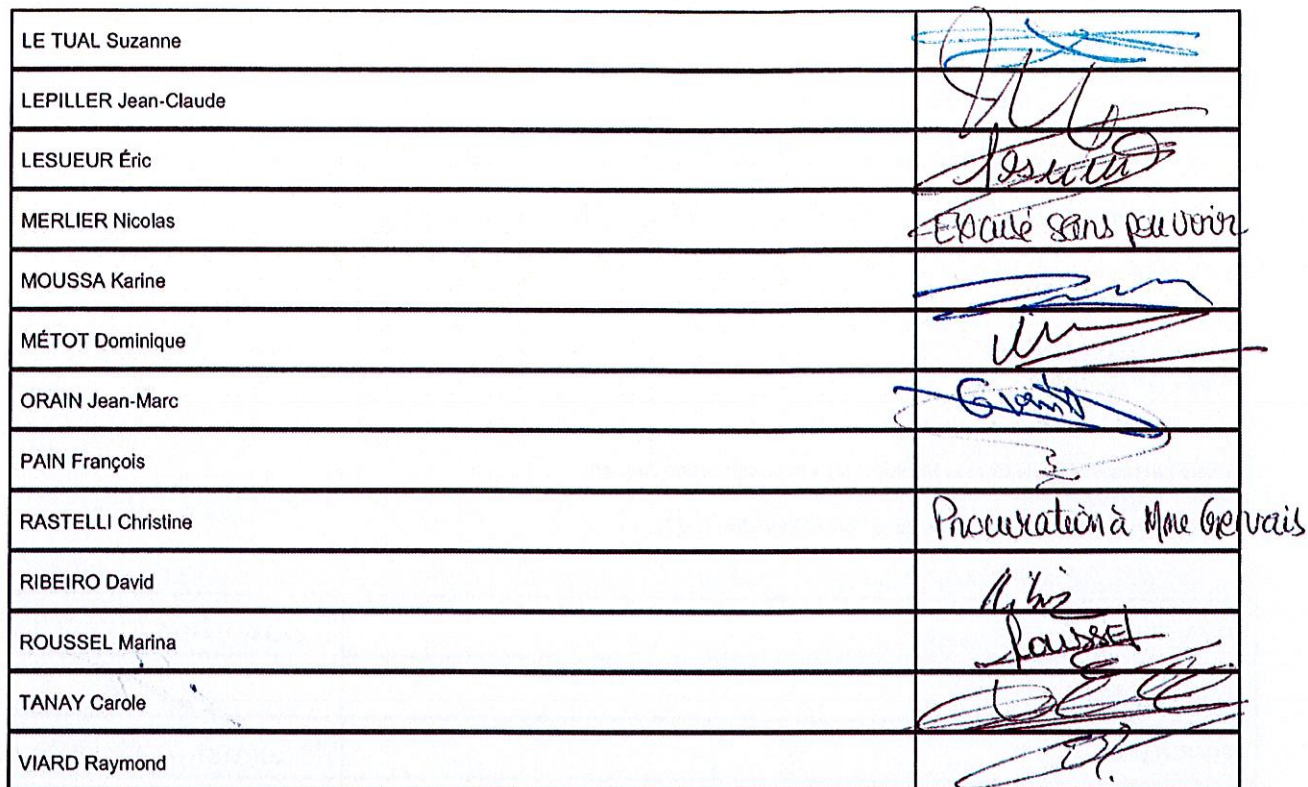 LE TUAL Suzanne
LEPILLER Jean-Claude
LESUEUR Éric
MERLIER Nicolas Excusé sans pouvoir
MOUSSA Karine
MÉTOT Dominique
ORAIN Jean-Marc
PAIN François
RASTELLI Christine Procuration à Mme Gervais
RIBEIRO David
ROUSSEL Marina Roussel
TANAY Carole
VIARD Raymond